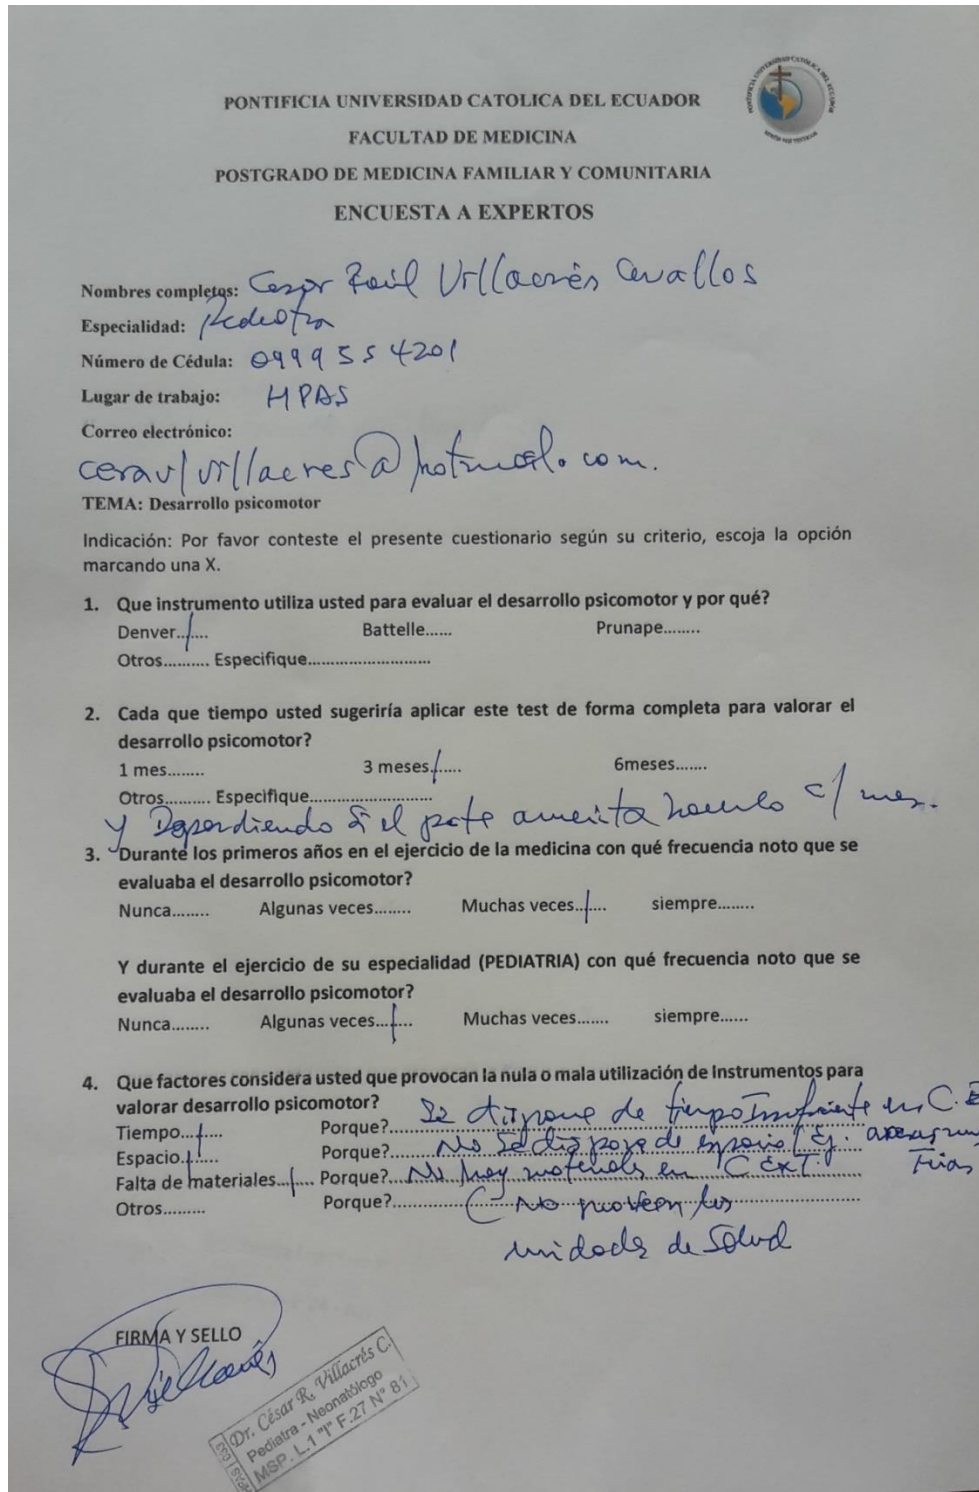 PONTIFICIA UNIVERSIDAD CATOLICA DEL ECUADOR
FACULTAD DE MEDICINA
POSTGRADO DE MEDICINA FAMILIAR Y COMUNITARIA
ENCUESTA A EXPERTOS
Nombres completos: Cesar Raúl Villacrés Cevallos
Especialidad: Pediatra
Número de Cédula: 0999554201
Lugar de trabajo: HPAS
Correo electrónico:
ceraulvillacres@hotmail.com.
TEMA: Desarrollo psicomotor
Indicación: Por favor conteste el presente cuestionario según su criterio, escoja la opción
marcando una X.
1. Que instrumento utiliza usted para evaluar el desarrollo psicomotor y por qué?
Denver../.... Battelle...... Prunape........
Otros.......... Especifique...........................
2. Cada que tiempo usted sugeriría aplicar este test de forma completa para valorar el
desarrollo psicomotor?
1 mes........ 3 meses./..... 6meses.......
Otros.......... Especifique...........................
y Dependiendo si el pcte amerita hacerlo c/ mes.
3. Durante los primeros años en el ejercicio de la medicina con qué frecuencia noto que se
evaluaba el desarrollo psicomotor?
Nunca........ Algunas veces........ Muchas veces../.... siempre........
Y durante el ejercicio de su especialidad (PEDIATRIA) con qué frecuencia noto que se
evaluaba el desarrollo psicomotor?
Nunca........ Algunas veces.../.... Muchas veces....... siempre......
4. Que factores considera usted que provocan la nula o mala utilización de Instrumentos para
valorar desarrollo psicomotor?
Tiempo.../.... Porque? Se dispone de tiempo Insuficiente en C.E
Espacio./...... Porque? No se dispone de espacio (Ej.
Falta de materiales.../.... Porque? No hay materiales en C. Ext.
Otros......... Porque? (- No proveen las
unidades de Salud
FIRMA Y SELLO
Villacrés
Dr. César R. Villacrés C.
Pediatra - Neonatólogo
MSP. L.1 "I" F.27 N° 81